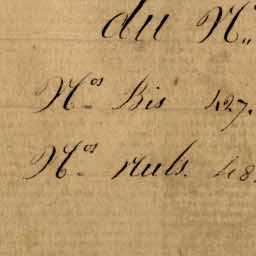 du N.º
N.os Bis 427.
N.os nuls. 48